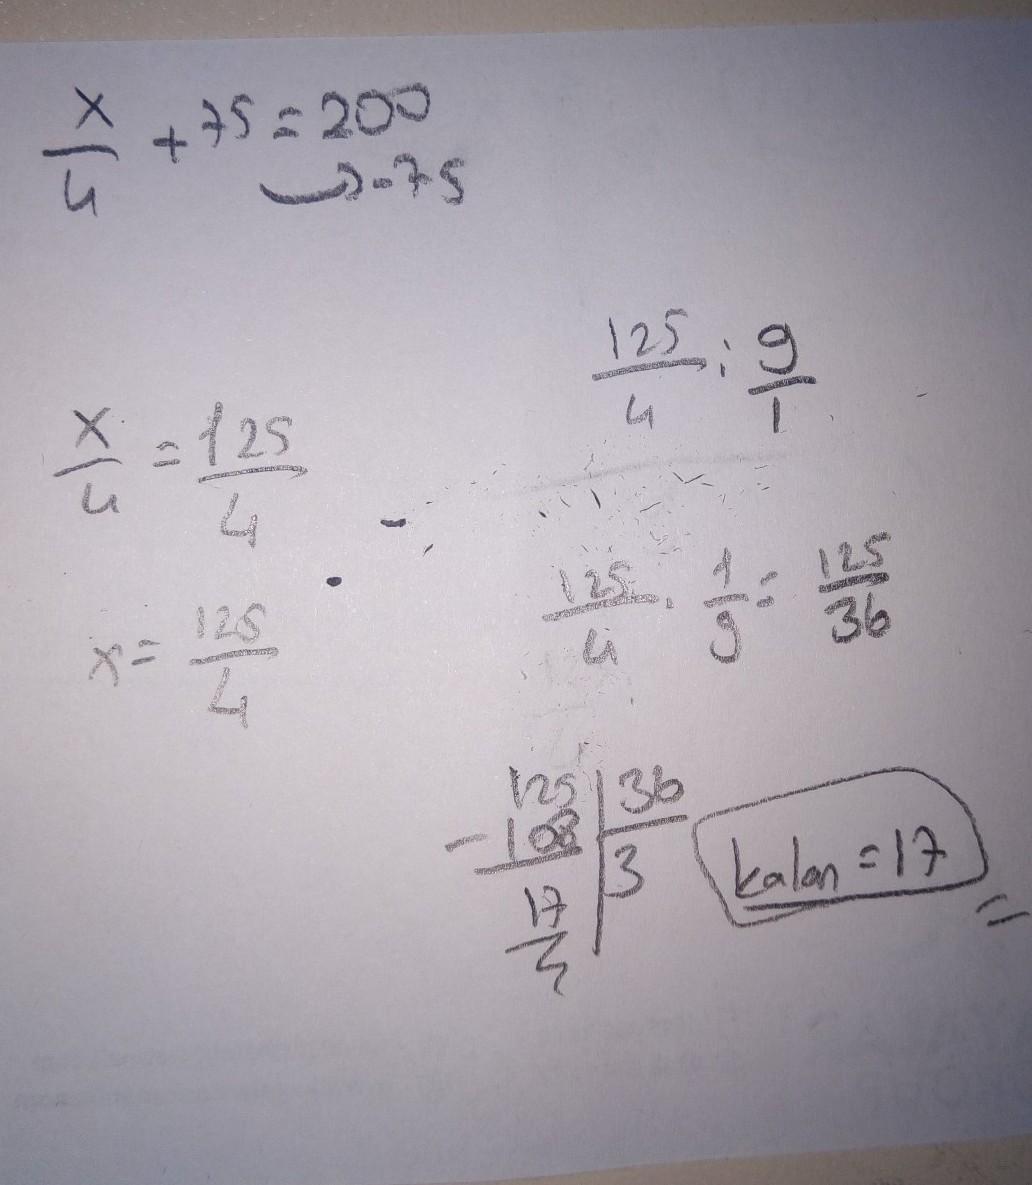 x/4 + 75 = 200
-75
x/4 = 125/4
x = 125/4
125/4 : 9/1
125/4 . 1/9 = 125/36
125 | 36
-108 | 3
17
kalan = 17